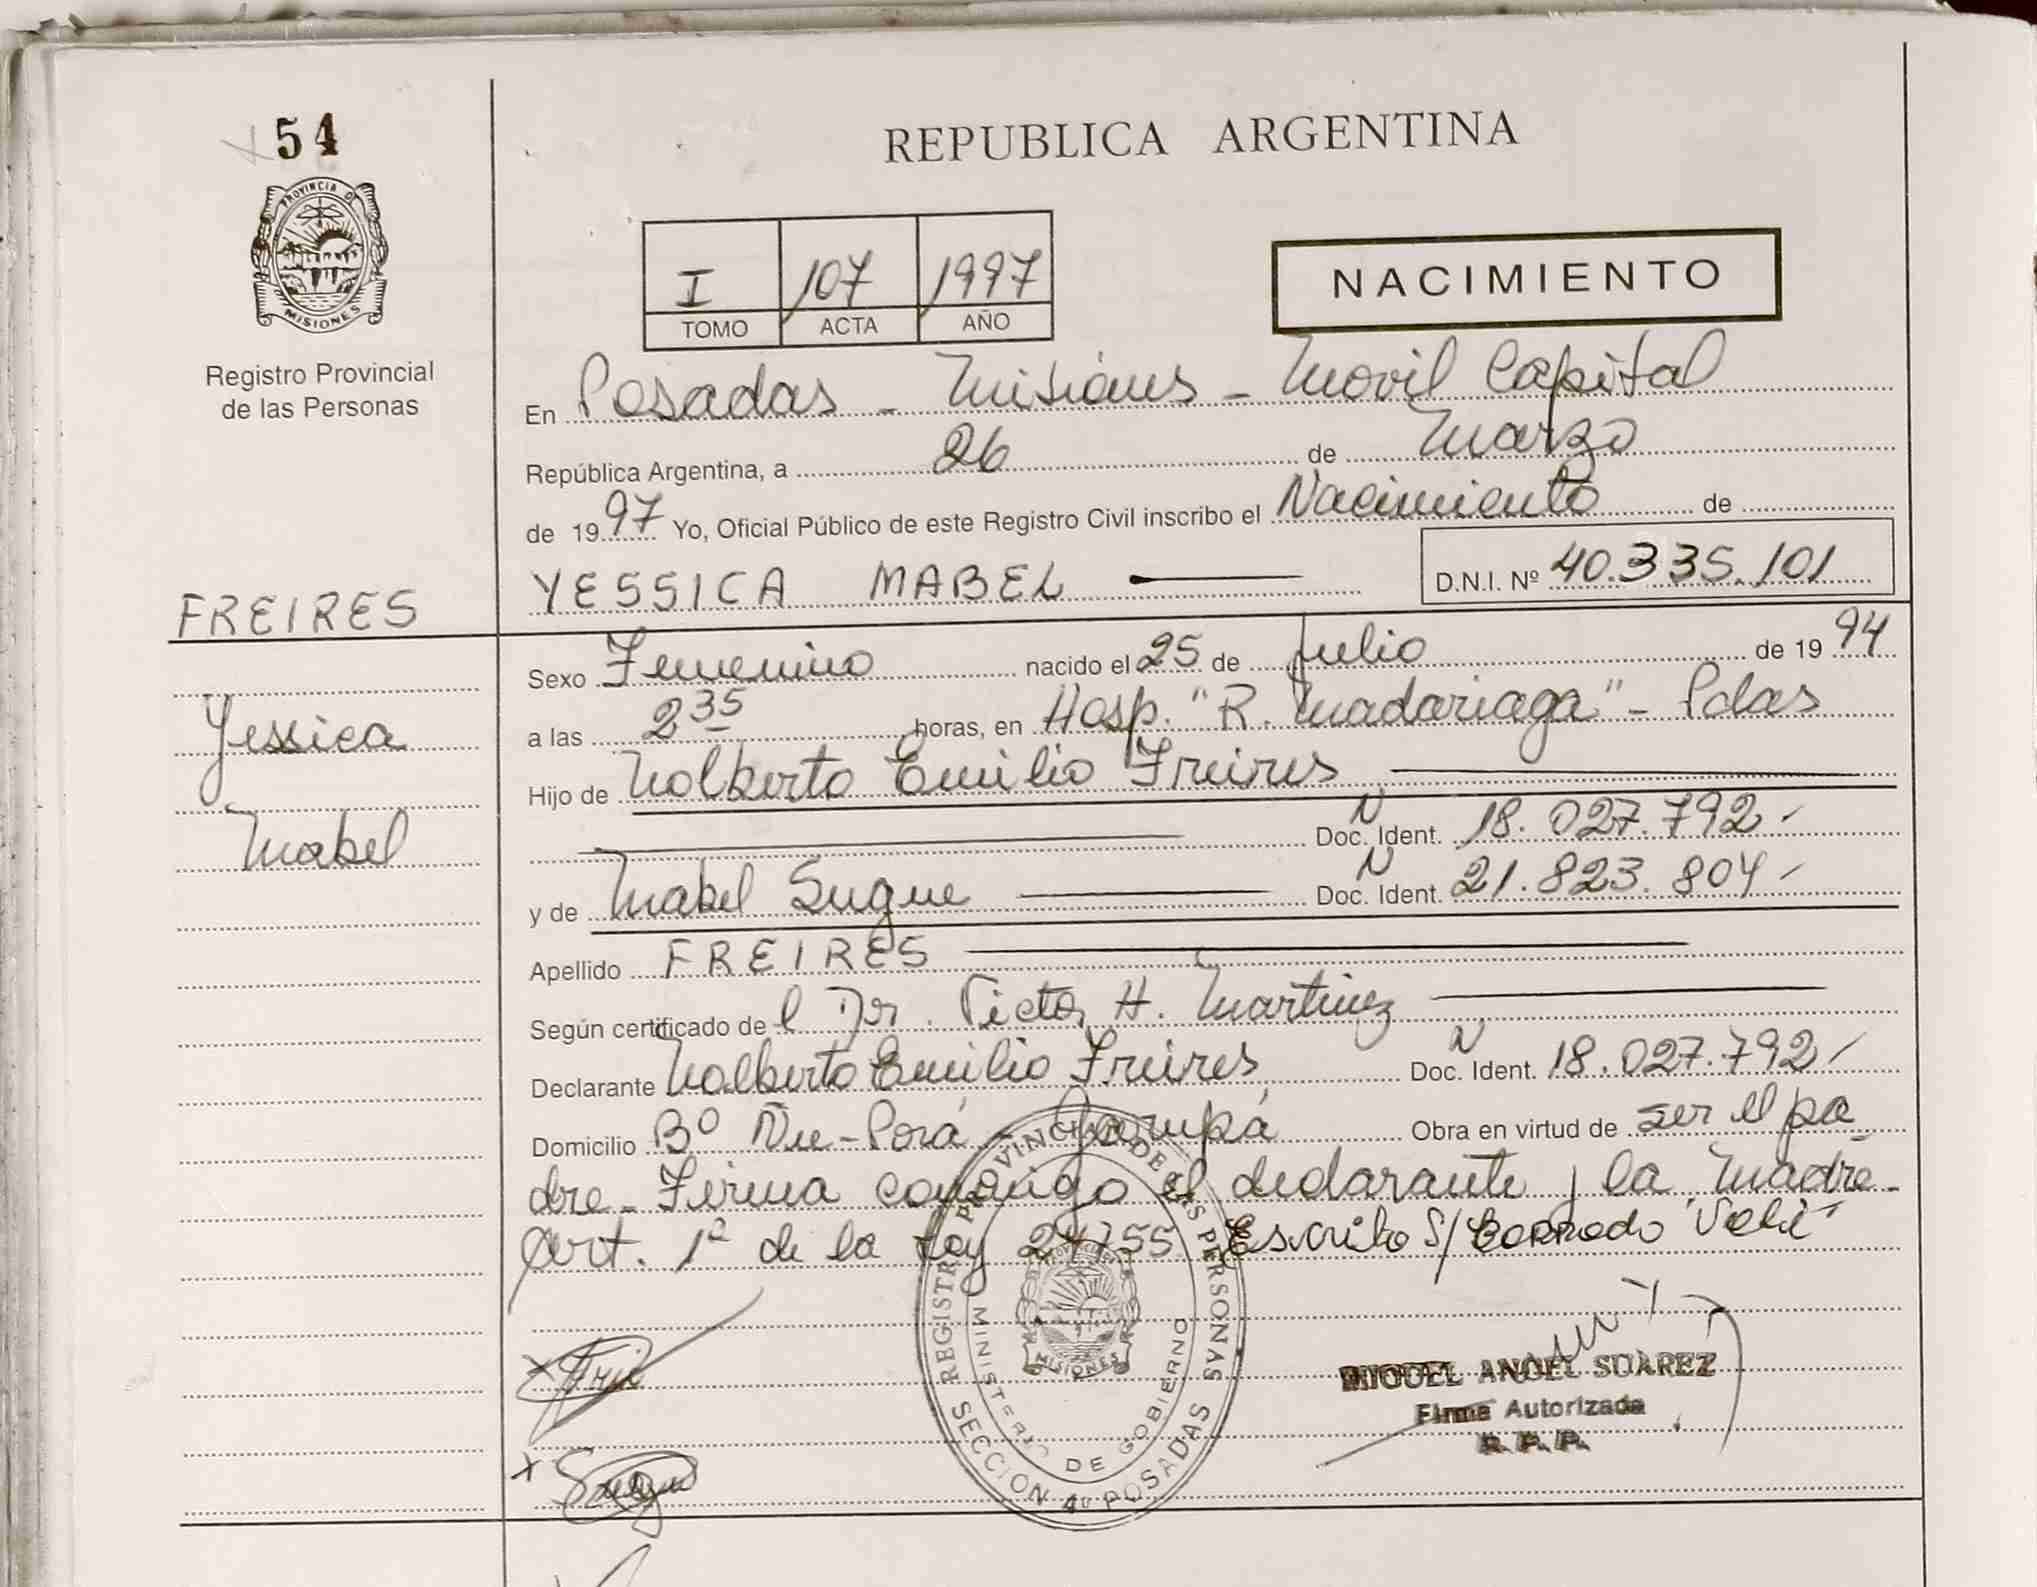 54
PROVINCIA DE
MISIONES
Registro Provincial
de las Personas
FREIRES
Yessica
Mabel
REPUBLICA ARGENTINA
I 107 1997
TOMO ACTA AÑO
NACIMIENTO
En Posadas - Misiones - Movil Capital
República Argentina, a 26 de Marzo
de 1997 Yo, Oficial Público de este Registro Civil inscribo el Nacimiento de
YESSICA MABEL D.N.I. Nº 40.335.101
Sexo Femenino nacido el 25 de Julio de 1994
a las 2 35 horas, en Hosp. "R. Madariaga" - Pdas
Hijo de Nolberto Emilio Freires
N
Doc. Ident. 18.027.792-
N
y de Mabel Sugue Doc. Ident. 21.823.804-
Apellido FREIRES
Según certificado de l Dr. Victor H. Martinez
N
Declarante Nolberto Emilio Freires Doc. Ident. 18.027.792-
Domicilio Bº Ñu-Porá - Garupá Obra en virtud de ser el pa
dre - Firma conmigo el declarante y la Madre -
Art. 1º de la Ley Escrito S/ Borrado Vale -
REGISTRO PROVINCIAL DE LAS PERSONAS
SECCION 4º POSADAS
MINISTERIO DE GOBIERNO
MISIONES
MIGUEL ANGEL SUAREZ
Firma Autorizada
R. P. P.